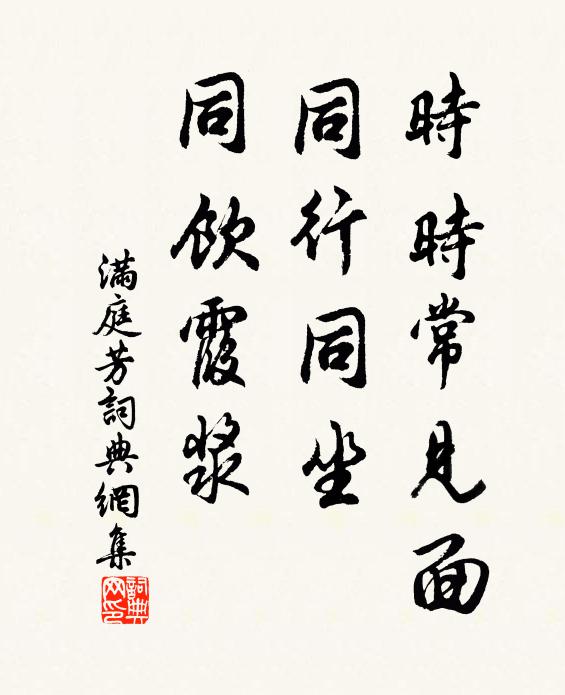 時時常見面
同行同坐
同飲霞漿
滿庭芳詞典網集
詞典
网印